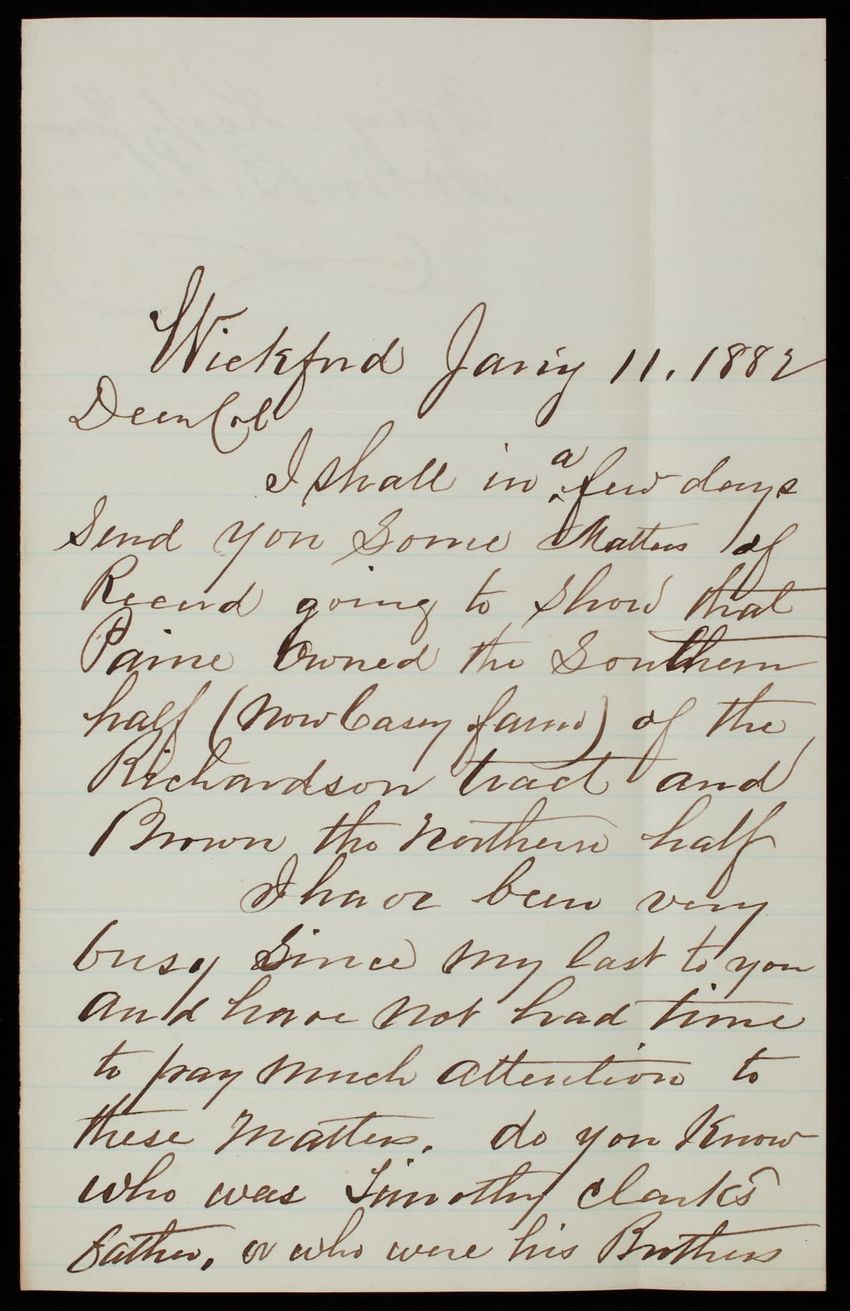 Wickford Jan'y 11. 1882
Dear Col
I shall in a few days
Send you Some Matters of
Record going to Show that
Paine Owned the Southern
half (now Casey farm) of the
Richardson tract and
Brown the Northern half
I have been very
busy Since my last to you
and have not had time
to pay much attention to
these Matters. do you Know
who was Timothy Clarks
father, or who were his Brothers